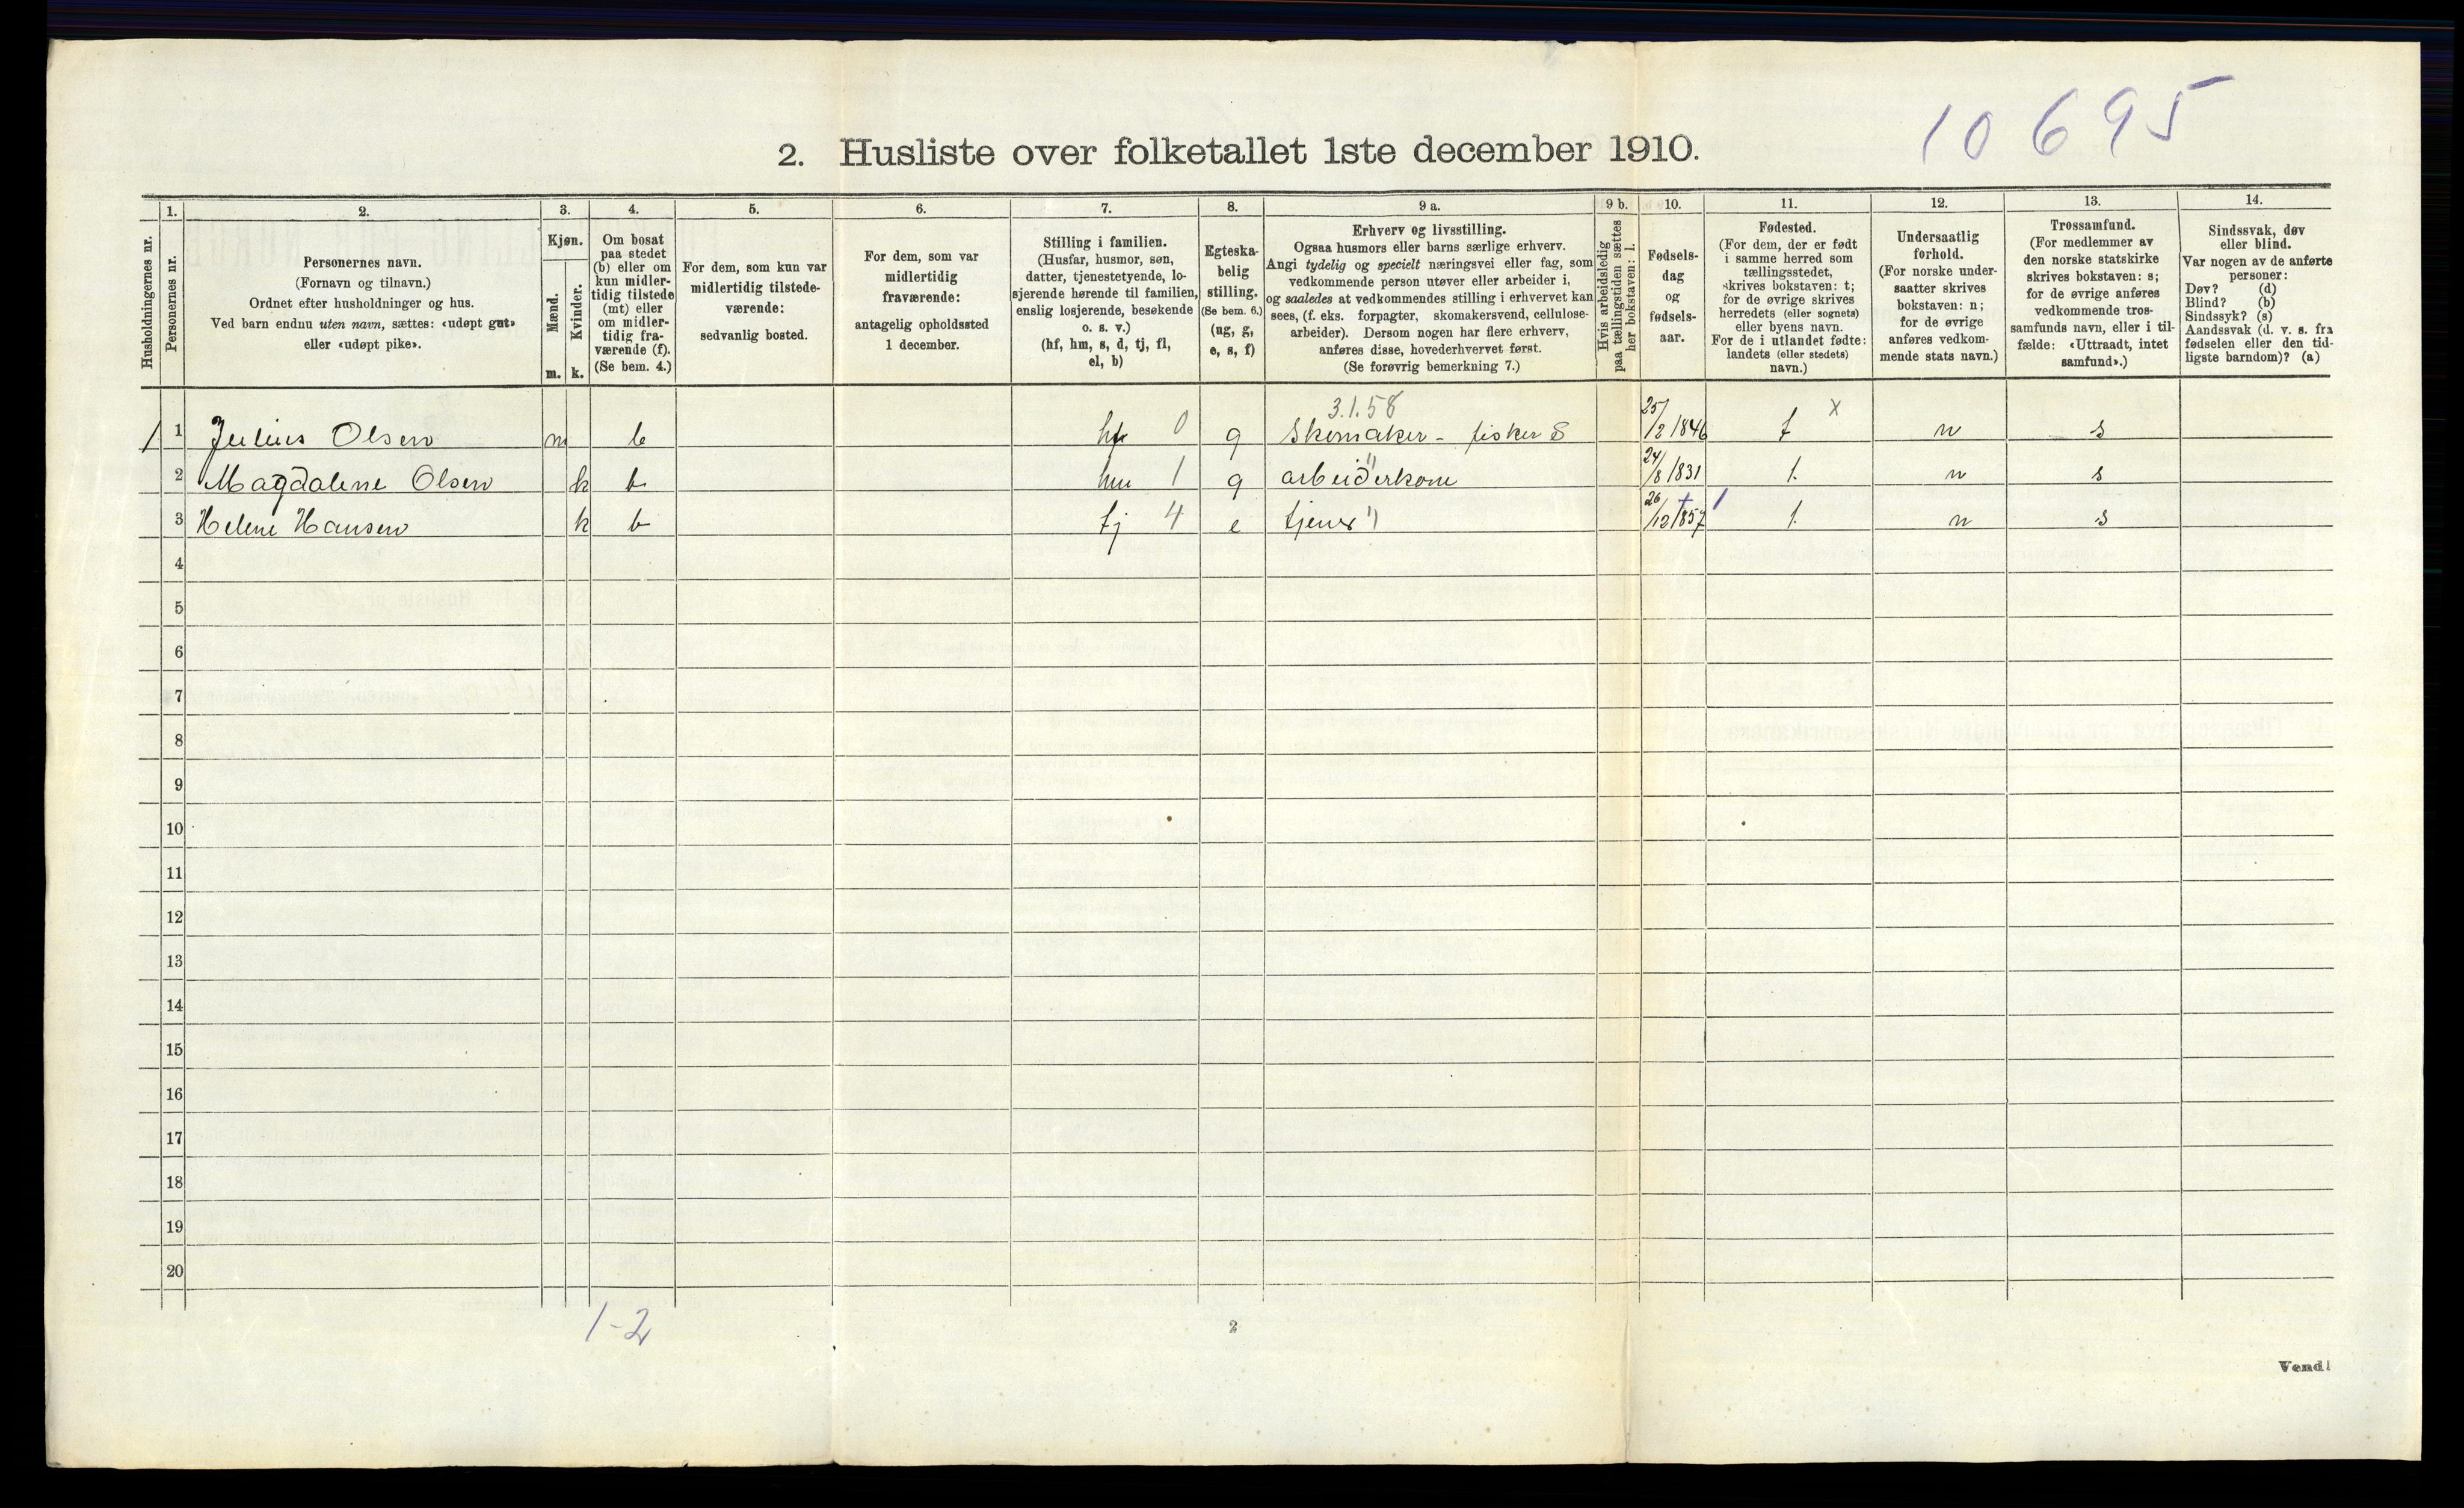 10 695
2. Husliste over folketallet 1ste december 1910.
Husholdningernes nr.
1.
Personernes nr.
2.
Personernes navn.
(Fornavn og tilnavn.)
Ordnet efter husholdninger og hus.
Ved barn endnu uten navn, sættes: «udøpt gut»
eller «udøpt pike».
3.
Kjøn.
Mænd.
Kvinder.
m. k.
4.
Om bosat
paa stedet
(b) eller om
kun midler-
tidig tilstede
(mt) eller
om midler-
tidig fra-
værende (f).
(Se bem. 4.)
5.
For dem, som kun var
midlertidig tilstede-
værende:
sedvanlig bosted.
6.
For dem, som var
midlertidig
fraværende:
antagelig opholdssted
1 december.
7.
Stilling i familien.
(Husfar, husmor, søn,
datter, tjenestetyende, lo-
sjerende hørende til familien,
enslig losjerende, besøkende
o. s. v.)
(hf, hm, s, d, tj, fl,
el, b)
8.
Egteska-
belig
stilling.
(Se bem. 6.)
(ug, g,
e, s, f)
9 a.
Erhverv og livsstilling.
Ogsaa husmors eller barns særlige erhverv.
Angi tydelig og specielt næringsvei eller fag, som
vedkommende person utøver eller arbeider i,
og saaledes at vedkommendes stilling i erhvervet kan
sees, (f. eks. forpagter, skomakersvend, cellulose-
arbeider). Dersom nogen har flere erhverv,
anføres disse, hovederhvervet først.
(Se forøvrig bemerkning 7.)
9 b.
Hvis arbeidsledig
paa tællingstiden sættes
her bokstaven: l.
10.
Fødsels-
dag
og
fødsels-
aar.
11.
Fødested.
(For dem, der er født
i samme herred som
tællingsstedet,
skrives bokstaven: t;
for de øvrige skrives
herredets (eller sognets)
eller byens navn.
For de i utlandet fødte:
landets (eller stedets)
navn.)
12.
Undersaatlig
forhold.
(For norske under-
saatter skrives
bokstaven: n;
for de øvrige
anføres vedkom-
mende stats navn.)
13.
Trossamfund.
(For medlemmer av
den norske statskirke
skrives bokstaven: s;
for de øvrige anføres
vedkommende tros-
samfunds navn, eller i til-
fælde: «Uttraadt, intet
samfund».)
14.
Sindssvak, døv
eller blind.
Var nogen av de anførte
personer:
Døv? (d)
Blind? (b)
Sindssyk? (s)
Aandssvak (d. v. s. fra
fødselen eller den tid-
ligste barndom)? (a)
3.1.58
1 1 Julius Olsen m b hf 0 g Skomaker - fisker S 25/2 1846 t x n s
2 Magdalene Olsen k b hm 1 g arbeiderkone " 24/8 1831 t n s
3 Helene Hansen k b tj 4 e tjener " 26/12 1857 t n s
4
5
6
7
8
9
10
11
12
13
14
15
16
17
18
19
20
1-2
2
Vend!